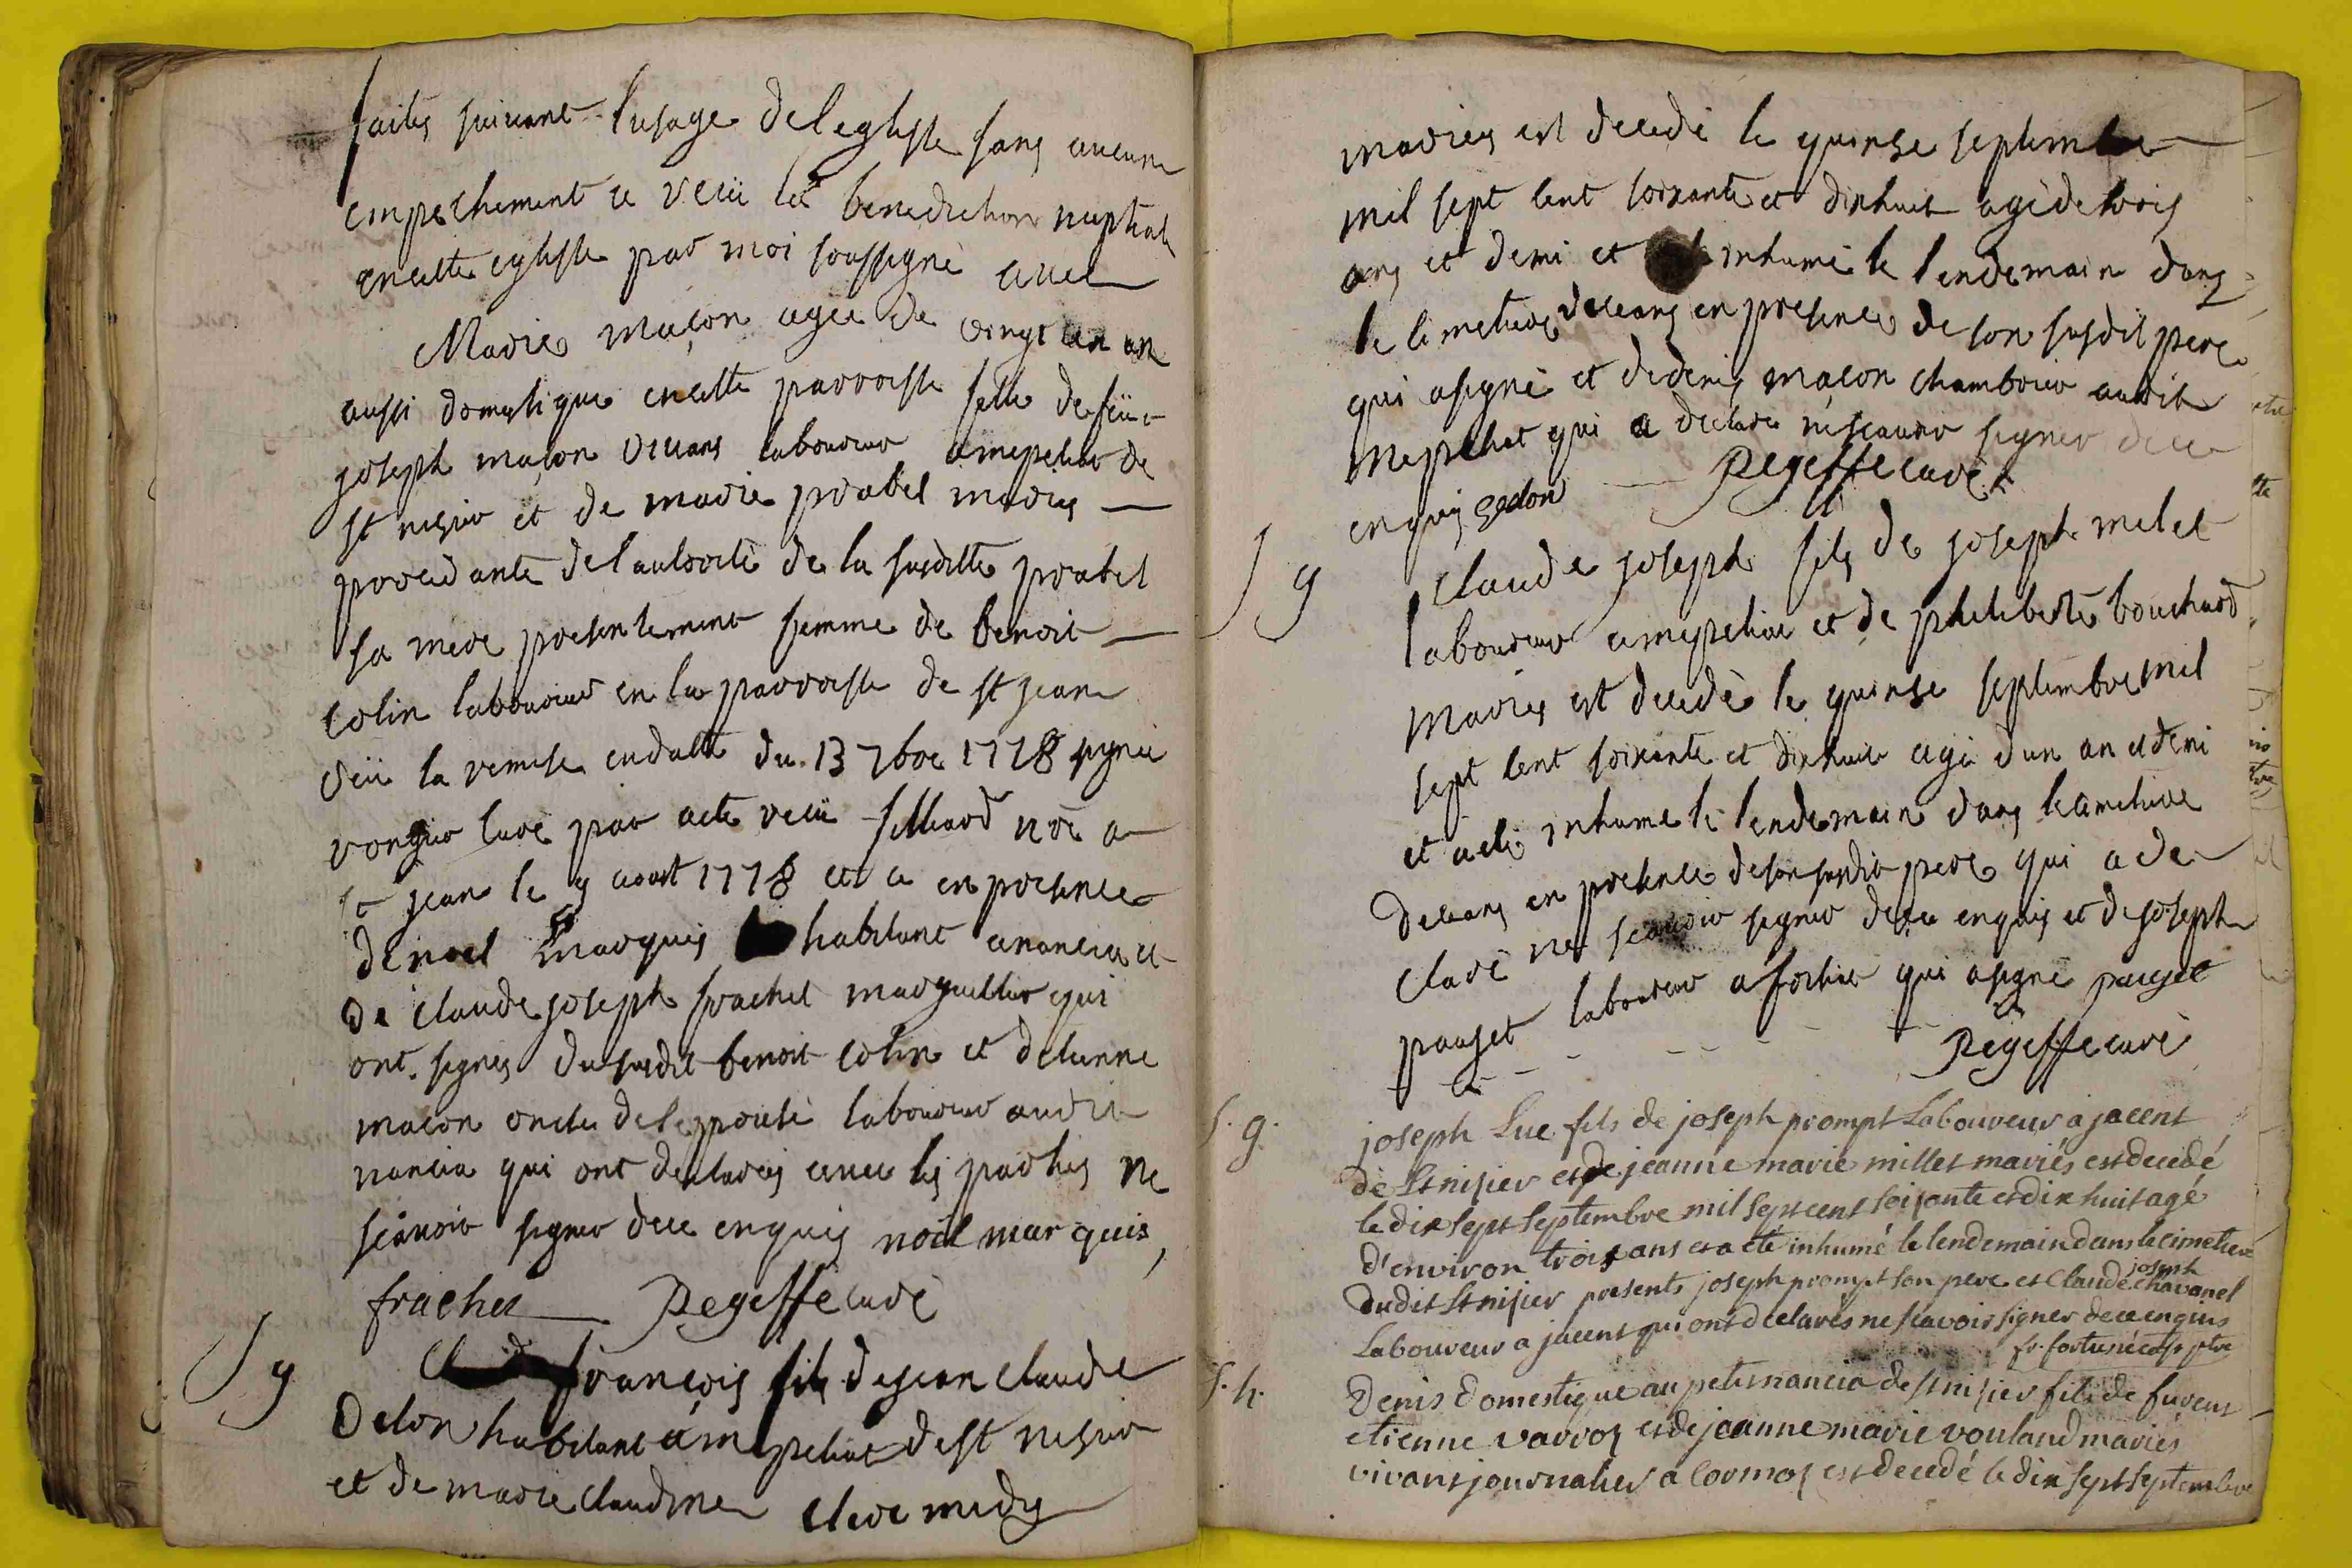 faites suivant lusage de leglisse sans aucune
empechement a recü la benediction nuptiale
en cette eglisse par moi soussigné avec
Marie maçon agee de vingt un an
aussi domestique en cette parroisse fille de feüe
joseph maçon vivans laboureur a mepeliat de
st nisier et de marie prabel mariés
procedante de lauthorité de la susditte prabel
sa mere presentement femme de benoit
colin laboureur en la parroisse de st jean
veü la remise en datte du 13 7bre 1778 signée
rongier curé par acte recü filliard nre a
st jean le 9 aoust 1778 et ce en presence
de noel marquis habitant a nancia et
de claude joseph frachet marguillier qui
ont signés du susdit benoit colin et detienne
macon oncle de lepouse laboureur audit
nancia qui ont declarés avec les parties ne
scavoir signer de ce enquis noël marquis
frachet Regeffe curé
S g
françois fils de jean claude
Delon habitant a mepeliat de st nisier
et de marie claudine
mariés est decedé le quinse septembre
mil sept cent soixante et dixhuit agé de trois
ans et demi et inhumé le lendemain dans
le cimetiere deceans en presence de son susdit pere
qui a signé et de denis maçon chambrier audit
mepeliat qui a declaré ne scavoir signer de ce
enquis gedon Regeffe curé
S g
Claude joseph fils de joseph milet
laboureur a mepeliat et de philiberte bouchard
mariés est decedé le quinse septembre mil
sept cent soixante et dixhuit agé dun an et demi
et a eté inhumé le lendemain dans le cimetiere
deceans en presence de son susdit pere qui a de
claré ne scavoir signer de ce enquis et de joseph
pauget laboureur a qui a signé pauget
Regeffe curé
S. g.
joseph Luc fils de joseph prompt Laboureur a jacent
de St nisier et de jeanne marie millet mariés est decedé
le dix sept septembre mil sept cent soisante et dix huit agé
d'environ trois ans et a eté inhumé le lendemain dans le cimetiere
dudit St nisier presents joseph prompt son pere et Claude joseph chavanel
Laboureur a jacent qui ont declarés ne scavoir signer de ce enquis
fr. fortuné cap ptre
S. h.
Denis domestique au petit nancia de st nisier fils de furent
etienne varroz et de jeanne marie vouland mariés
vivans journalier a Cormoz est decedé le dix sept septembre